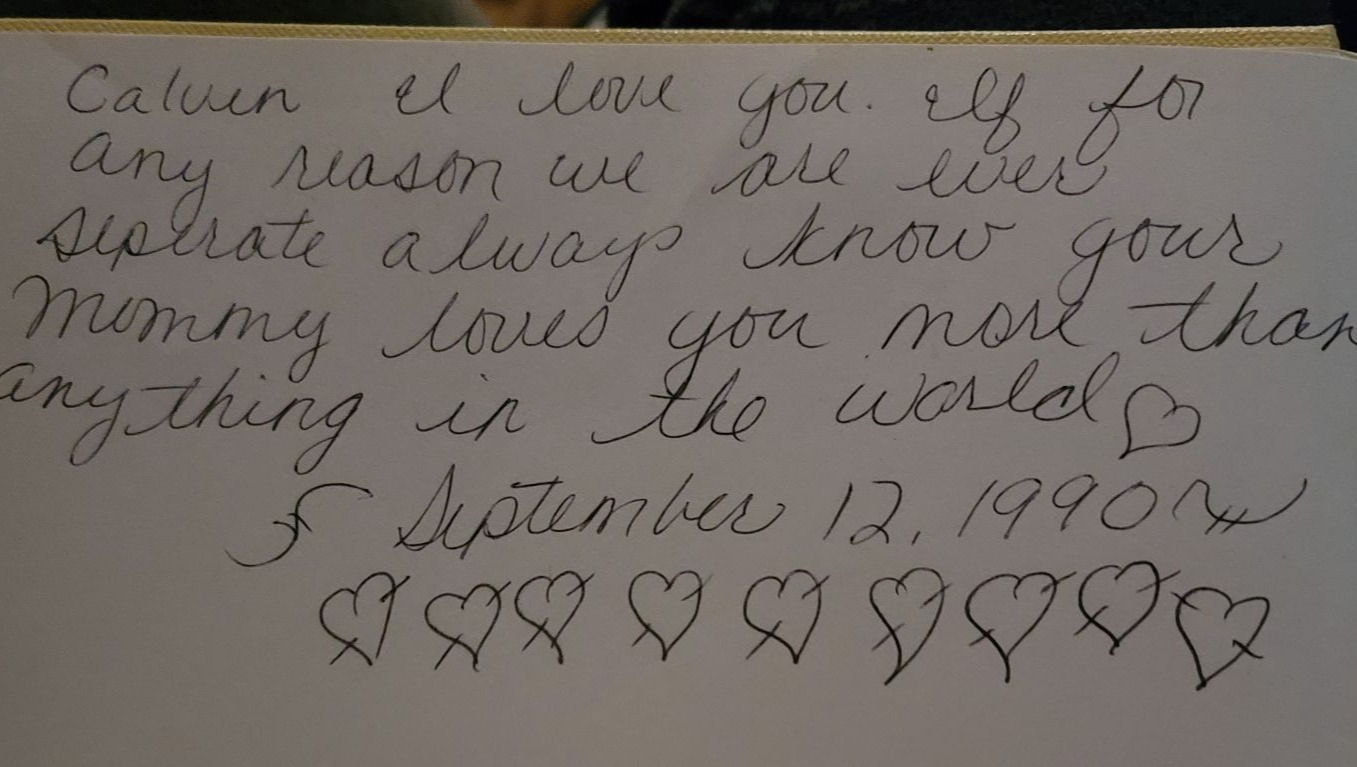 Calven I love you. If for
any reason we are ever
seperate always know your
Mommy loves you more than
anything in the world♡
September 12, 1990
♡♡♡♡♡♡♡♡♡